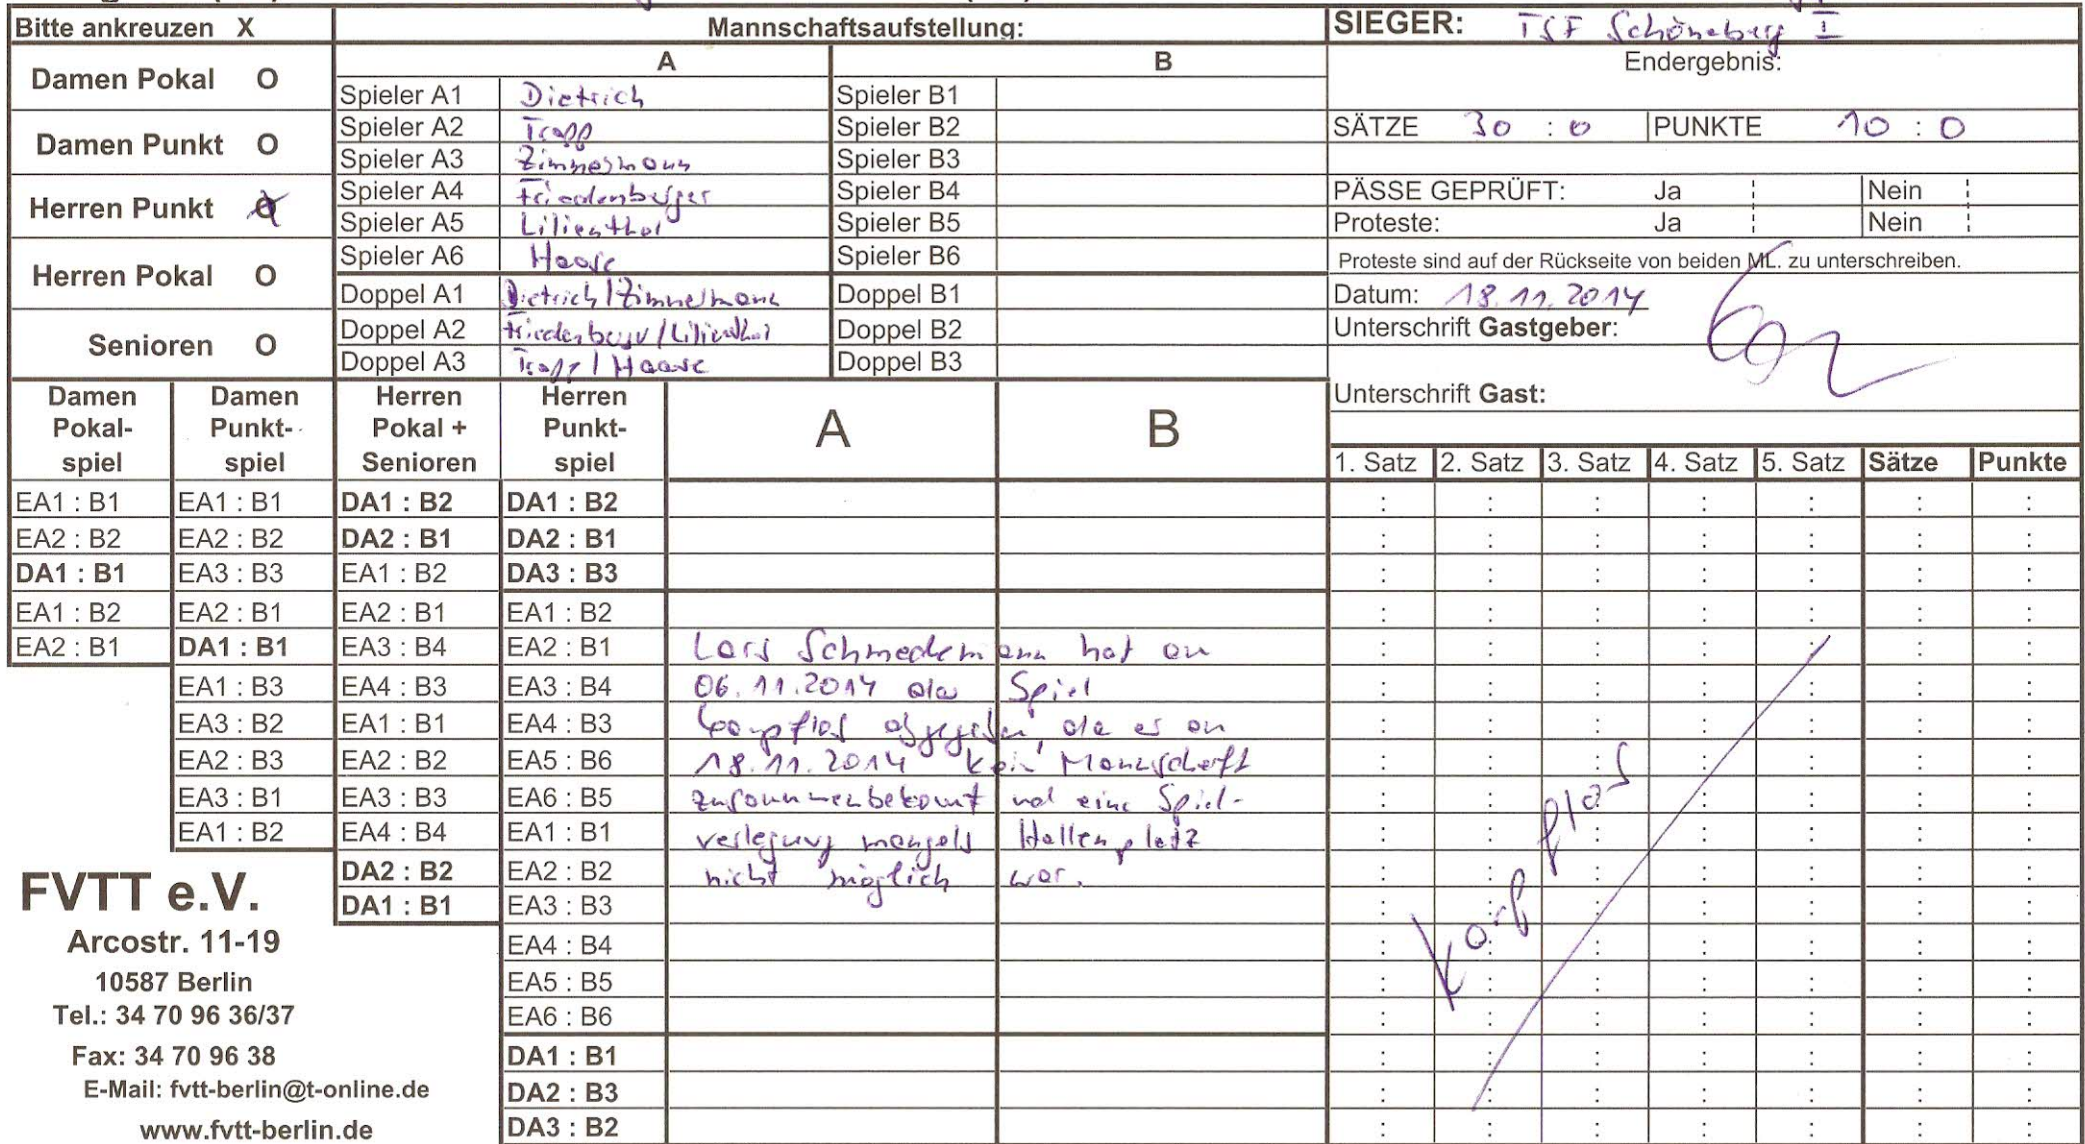 Bitte ankreuzen X
Mannschaftsaufstellung:
SIEGER: TSF Schöneberg I
Damen Pokal O
Damen Punkt O
Herren Punkt O
Herren Pokal O
Senioren O
A B
Spieler A1 Dietrich Spieler B1
Spieler A2 Trapp Spieler B2
Spieler A3 Zimmermann Spieler B3
Spieler A4 Friedenberger Spieler B4
Spieler A5 Lilienthal Spieler B5
Spieler A6 Haase Spieler B6
Doppel A1 Dietrich/Zimmermann Doppel B1
Doppel A2 Friedenberger/Lilienthal Doppel B2
Doppel A3 Trapp/Haase Doppel B3
Endergebnis:
SÄTZE 30 : 0 PUNKTE 10 : 0
PÄSSE GEPRÜFT: Ja Nein
Proteste: Ja Nein
Proteste sind auf der Rückseite von beiden ML. zu unterschreiben.
Datum: 18.11.2014
Unterschrift Gastgeber:
Unterschrift Gast:
Damen Pokal- spiel
Damen Punkt- spiel
Herren Pokal + Senioren
Herren Punkt- spiel
A B
1. Satz 2. Satz 3. Satz 4. Satz 5. Satz Sätze Punkte
EA1 : B1 EA1 : B1 DA1 : B2 DA1 : B2
EA2 : B2 EA2 : B2 DA2 : B1 DA2 : B1
DA1 : B1 EA3 : B3 EA1 : B2 DA3 : B3
EA1 : B2 EA2 : B1 EA2 : B1 EA1 : B2
EA2 : B1 DA1 : B1 EA3 : B4 EA2 : B1
EA1 : B3 EA4 : B3 EA3 : B4
EA3 : B2 EA1 : B1 EA4 : B3
EA2 : B3 EA2 : B2 EA5 : B6
EA3 : B1 EA3 : B3 EA6 : B5
EA1 : B2 EA4 : B4 EA1 : B1
DA2 : B2 EA2 : B2
DA1 : B1 EA3 : B3
EA4 : B4
EA5 : B5
EA6 : B6
DA1 : B1
DA2 : B3
DA3 : B2
Lars Schmedemann hat am
06.11.2014 das Spiel
kampflos abgegeben, da er am
18.11.2014 kein Mannschaft
zusammenbekommt und eine Spiel-
verlegung mangels Hallenplatz
nicht möglich war.
kampflos
FVTT e.V.
Arcostr. 11-19
10587 Berlin
Tel.: 34 70 96 36/37
Fax: 34 70 96 38
E-Mail: fvtt-berlin@t-online.de
www.fvtt-berlin.de